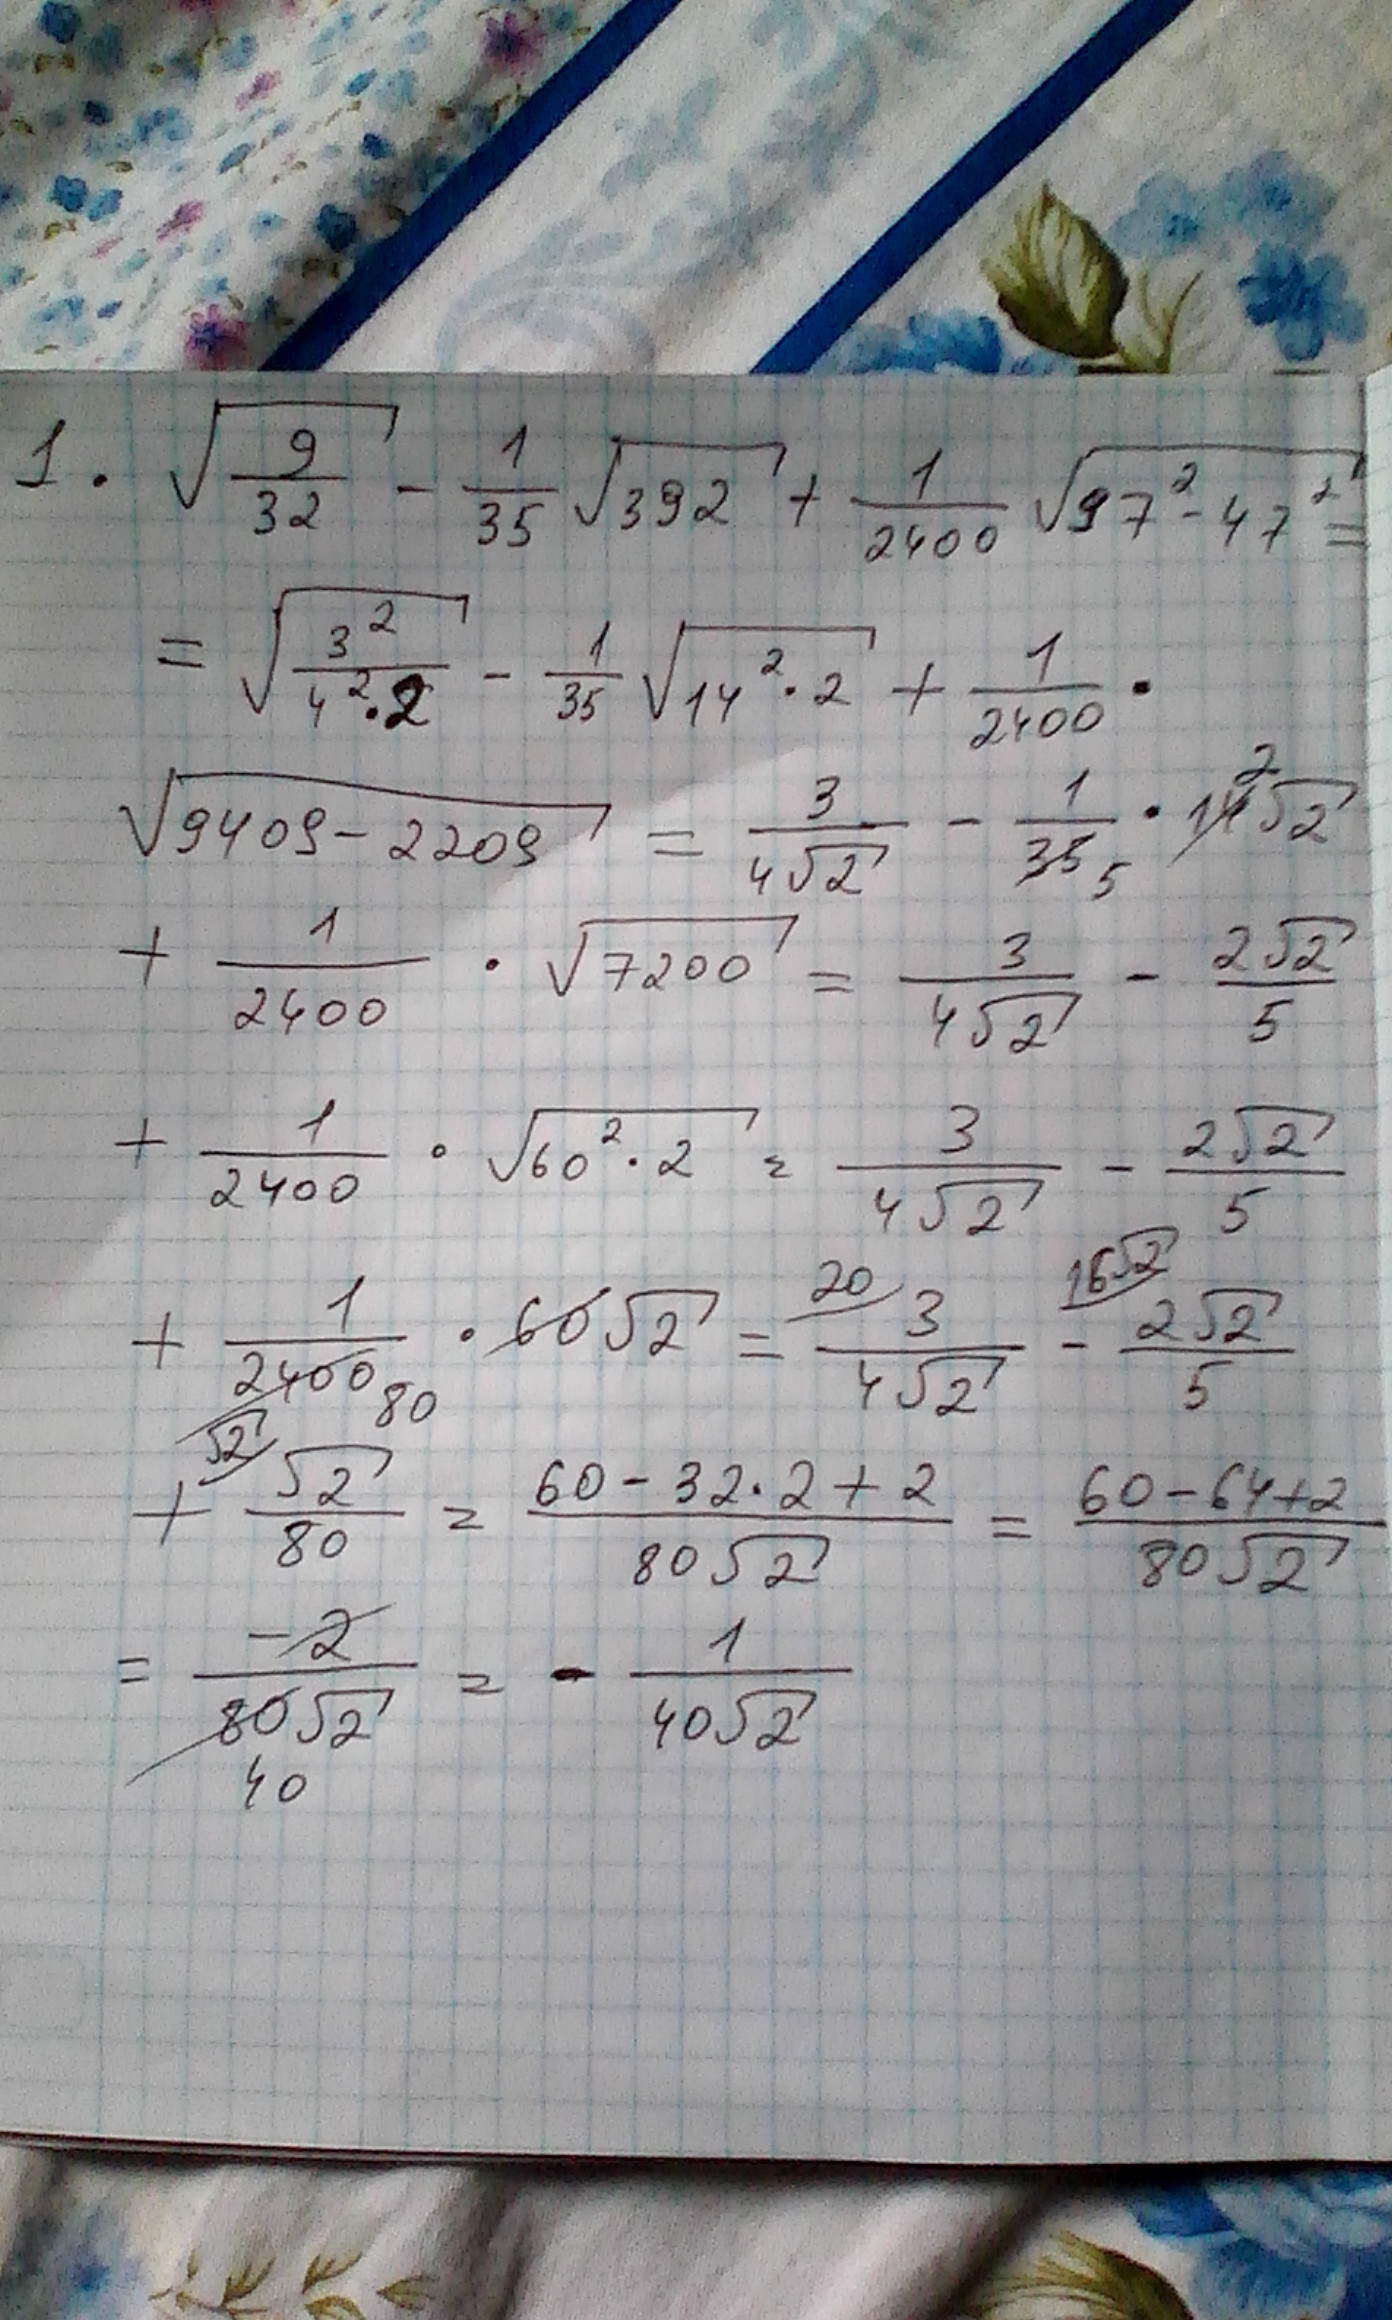 1. √(9/32) - 1/35 √392 + 1/2400 √(97² - 47²) =
= √(3²/(4²·2)) - 1/35 √(14²·2) + 1/2400 ·
√(9409 - 2209) = 3/(4√2) - 1/35 5 · 14 2 √2
+ 1/2400 · √7200 = 3/(4√2) - 2√2/5
+ 1/2400 · √(60²·2) = 3/(4√2) - 2√2/5
+ 1/2400 80 · 60√2 = 20 3/(4√2) - 16√2 2√2/5
+ √2 √2/80 = (60 - 32·2 + 2)/(80√2) = (60 - 64 + 2)/(80√2)
= -2/(80√2) 40 = - 1/(40√2)